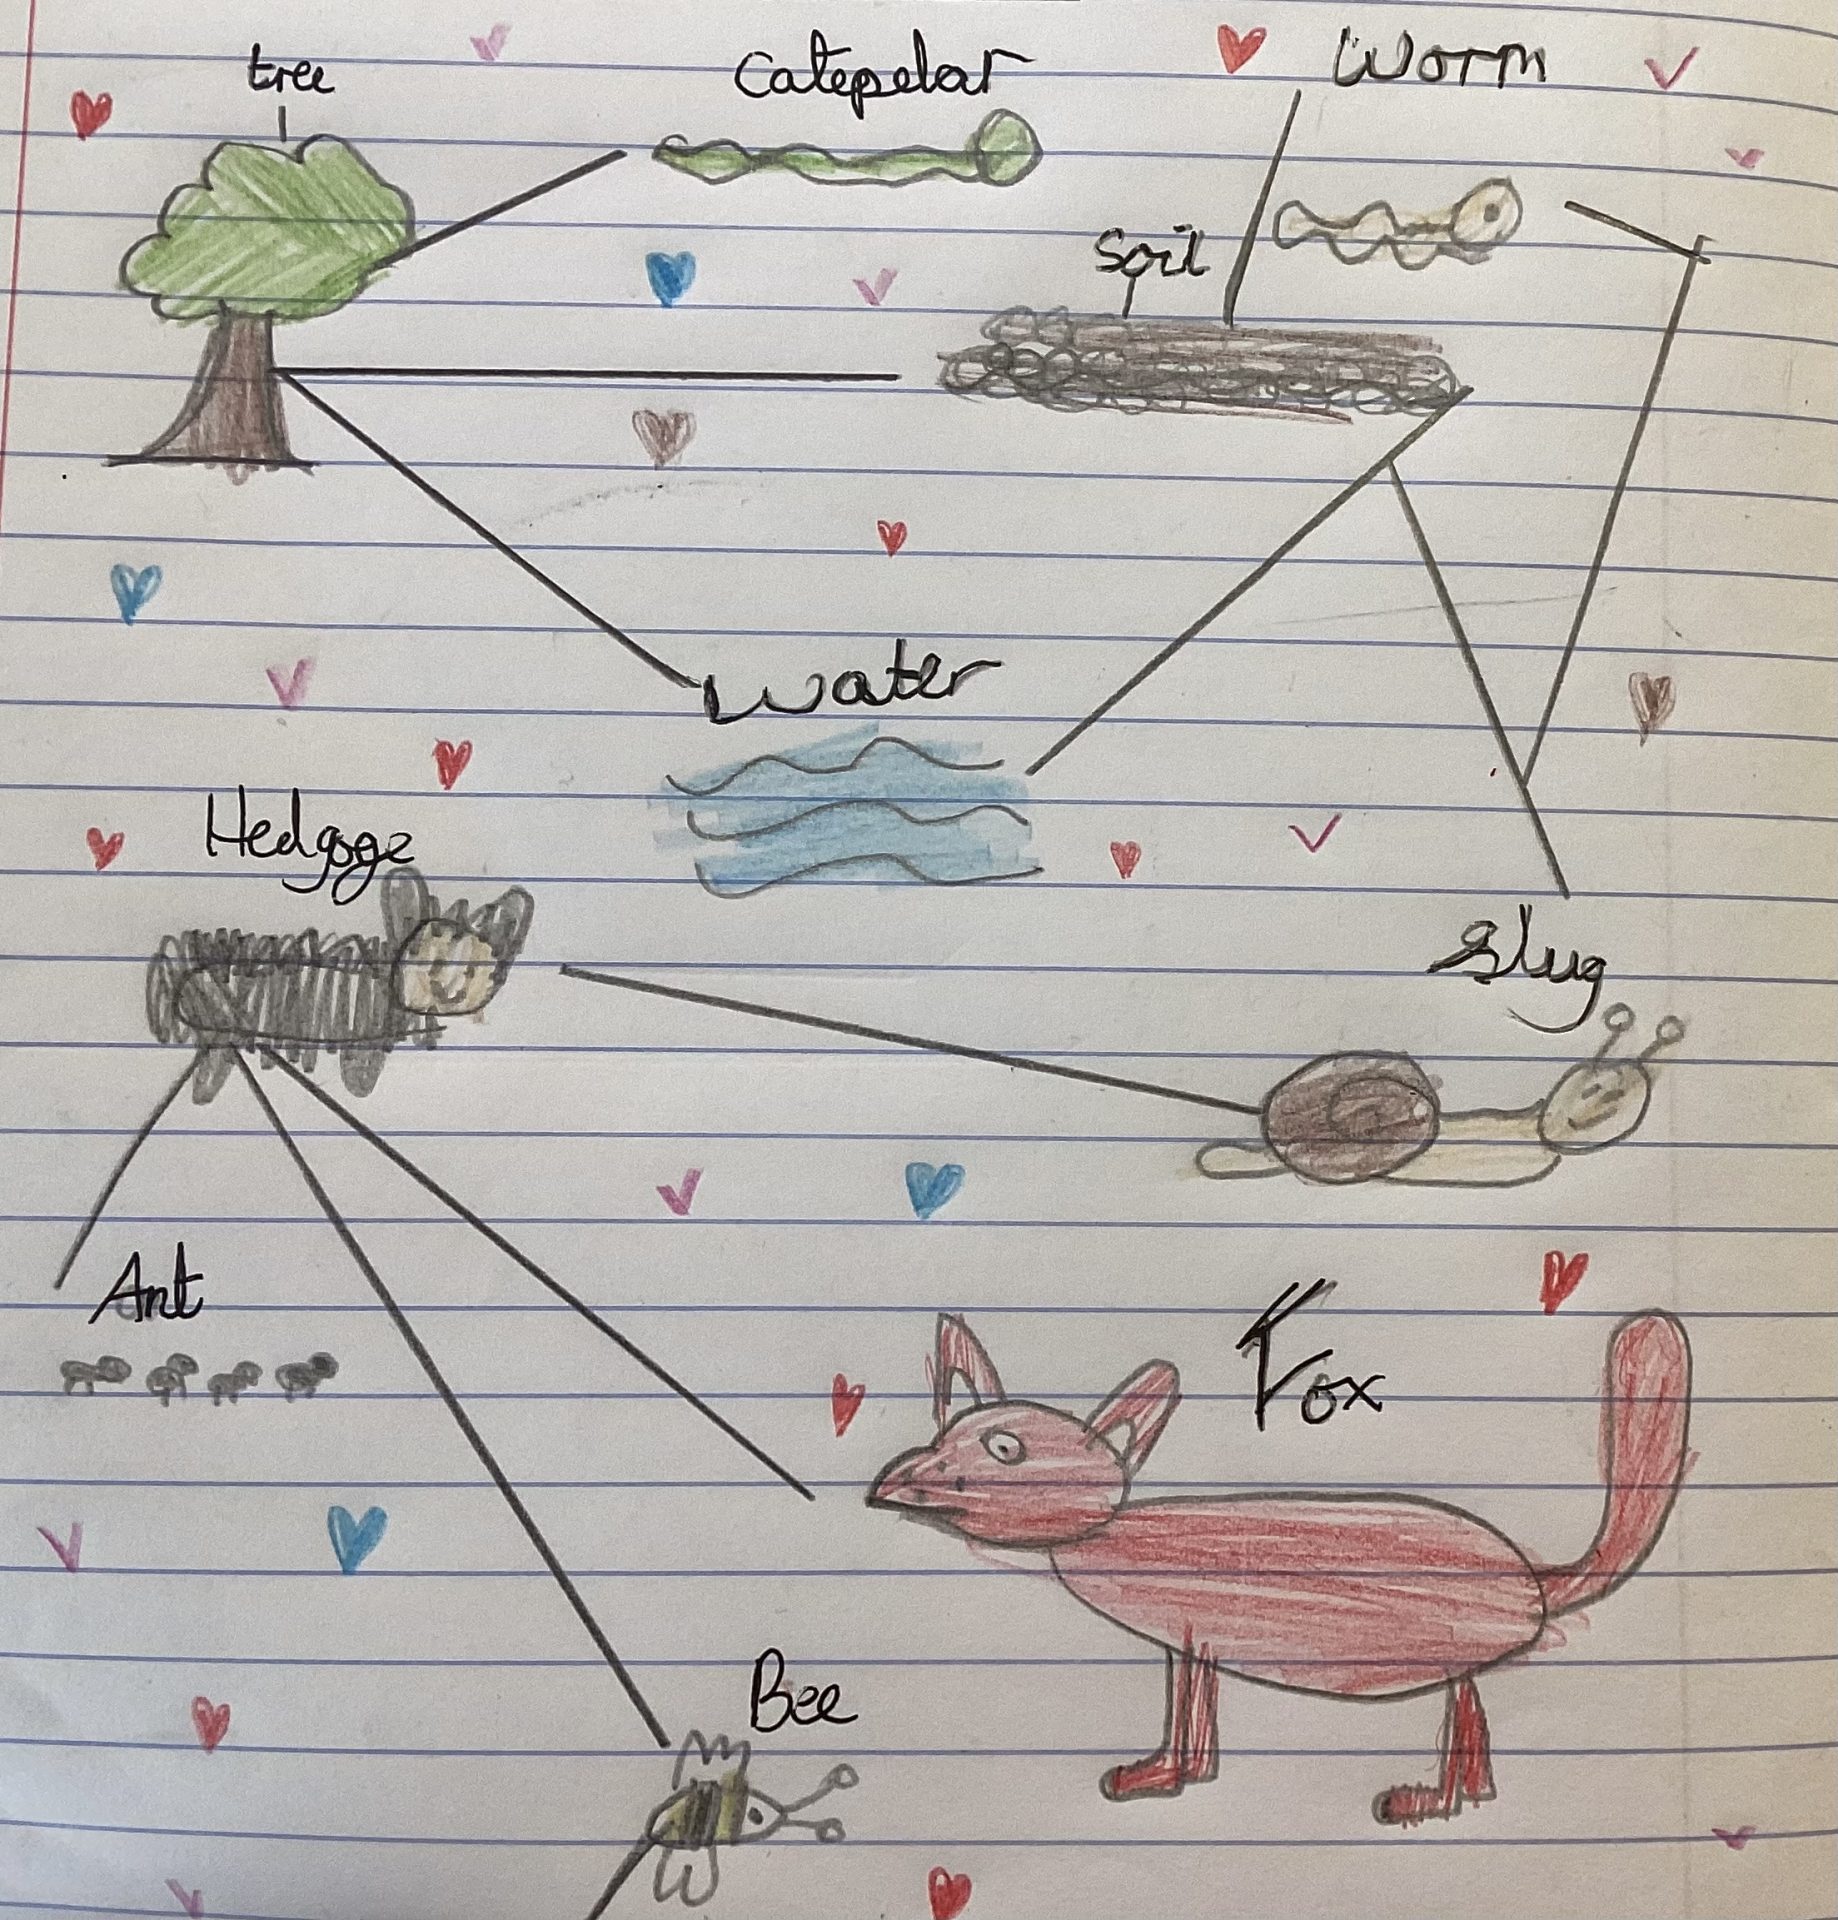 tree
Catepelar
Worm
Soil
Water
Hedgoge
Slug
Ant
Fox
Bee